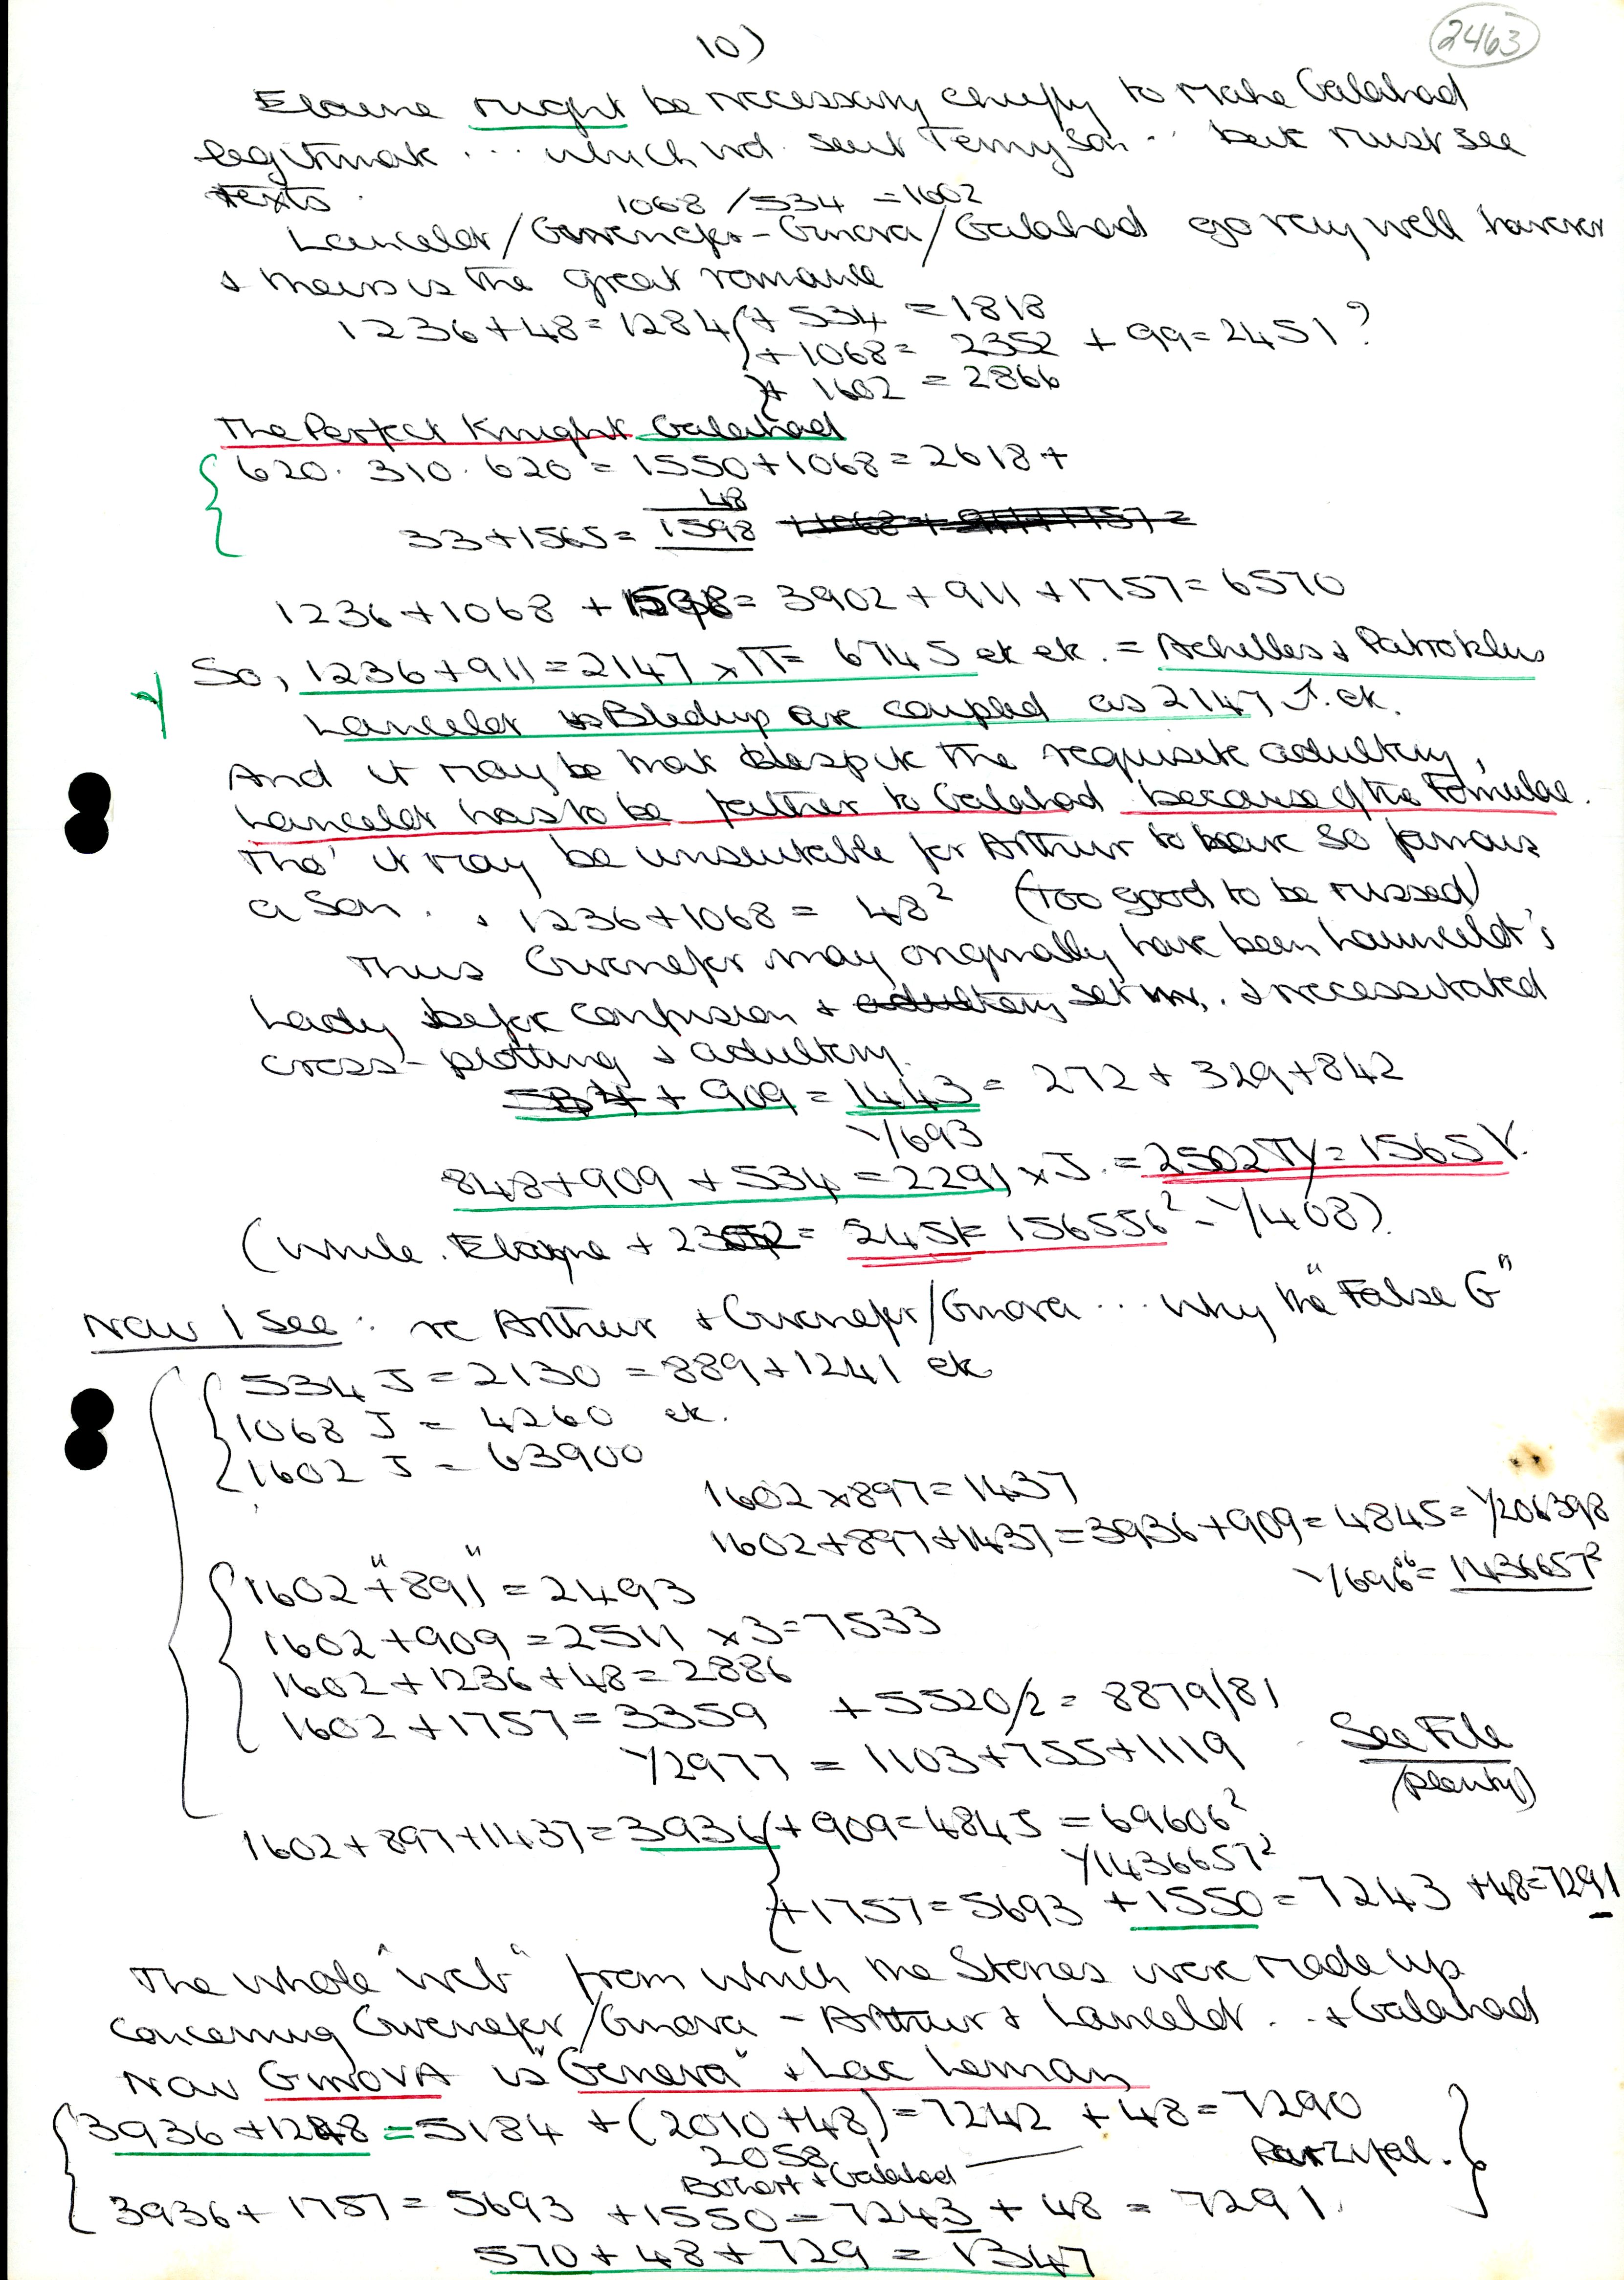 10)
2463
Elaine might be necessary chiefly to make Galahad
legitimate ... which wd. suit Tennyson .. but must see
texts.
1068 / 534 = 1602
Lancelot / Gwenefer - Ginova / Galahad go very well however
+ theirs is the great romance
1236 + 48 = 1284 + 534 = 1818
+ 1068 = 2352 + 99 = 2451 ?
+ 1602 = 2866
The Perfect Knight Galahad
620 . 310 . 620 = 1550 + 1068 = 2618 +
48
33 + 1565 = 1598 + 1068 + 911 + 1757 =
1236 + 1068 + 1598 = 3902 + 911 + 1757 = 6570
So, 1236 + 911 = 2147 x π = 6745 ek ek. = Achilles + Patroklus
Y Lancelot + Bledup are coupled as 2147 J. ek.
And it may be that despite the requisite adultery,
Lancelot has to be father to Galahad because of the Formulae.
Tho' it may be unsuitable for Arthur to have so famous
a son. . 1236 + 1068 = 48² (too good to be missed)
Thus Gwenefer may originally have been Launcelot's
Lady before confusion + adultery set in, + necessitated
cross-plotting + adultery.
534 + 909 = 1443 = 272 + 329 + 842
Y693
848 + 909 + 534 = 2291 x J. = 2502 π/ = 1565 Y.
(while Elayne + 2352 = 2451 = 156556² - Y/408).
Now I see : re Arthur + Gwenefer/Ginova ... why the "False G"
534 J = 2130 = 889 + 1241 ek
1068 J = 4260 ek.
1602 J = 63900
1602 x 897 = 1437
1602 + 897 + 1437 = 3936 + 909 = 4845 = Y206398
Y69606 = 1436657²
1602 "+ 891" = 2493
1602 + 909 = 2511 x 3 = 7533
1602 + 1236 + 48 = 2886
1602 + 1757 = 3359 + 5520/2 = 8879/81
Y2977 = 1103 + 755 + 1119
See File
(plenty)
1602 + 897 + 1437 = 3936 + 909 = 4845 = 69606²
Y1436657²
+ 1757 = 5693 + 1550 = 7243 + 48 = 7291
The whole "web" from which the Stories were made up
concerning Gwenefer/Ginova - Arthur + Lancelot . . + Galahad
Now GINOVA is "Geneva" + Lac Leman
3936 + 1248 = 5184 + (2010 + 48) = 7242 + 48 = 7290
2058
Bohort + Galahad
Parzifal.
3936 + 1757 = 5693 + 1550 = 7243 + 48 = 7291.
570 + 48 + 729 = 1347